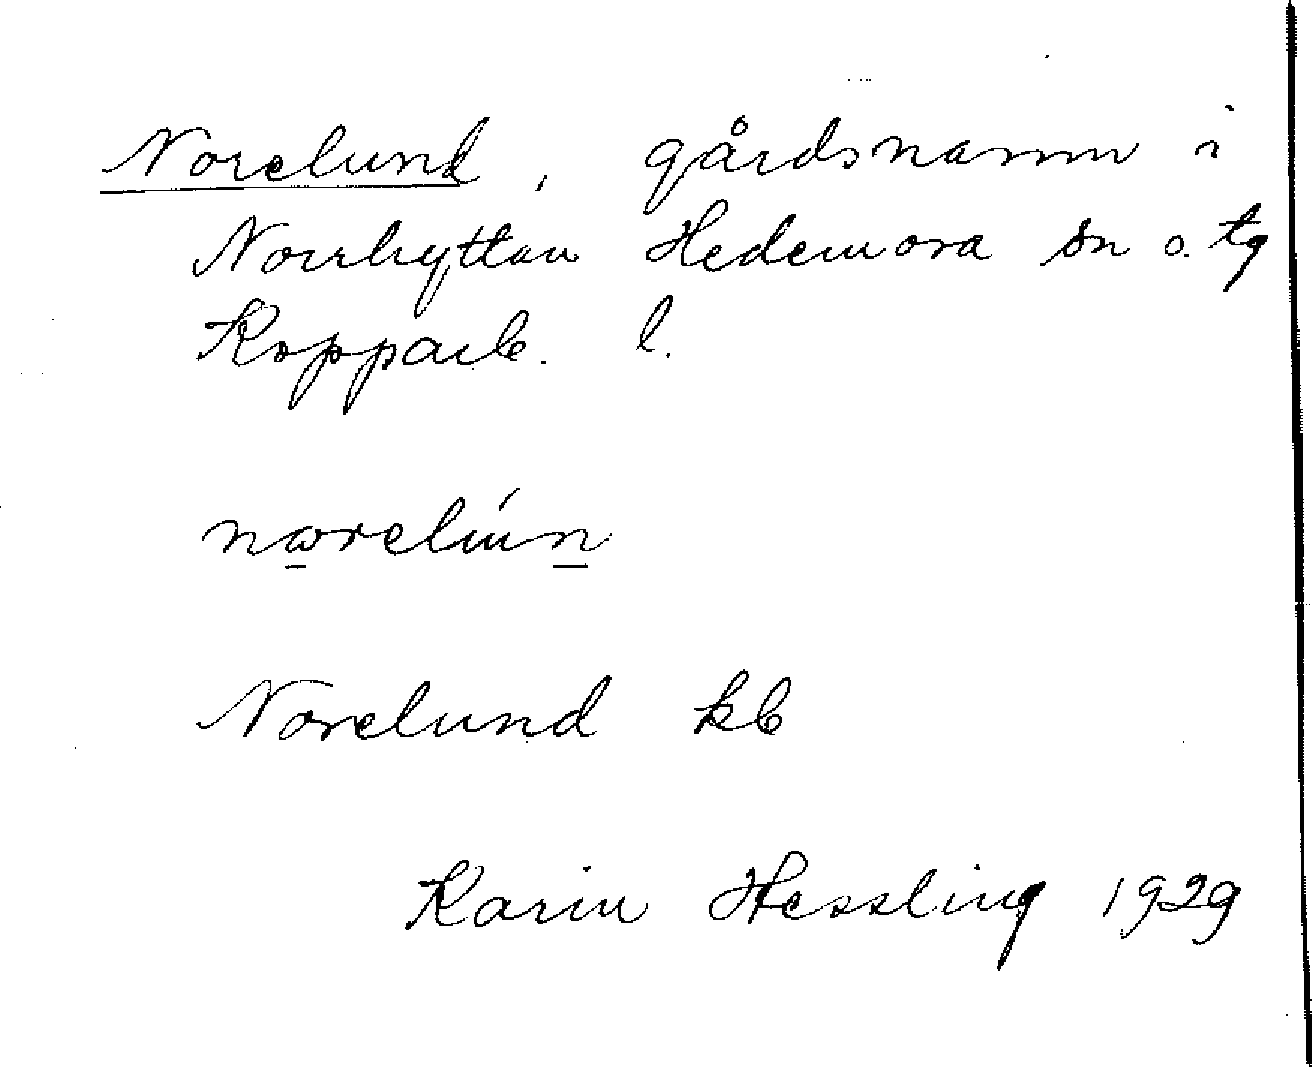 Norelund, gårdsnamn i
Norrhyttan Hedemora sn o. tg
Kopparb. l.
nωrelún
Norelund kb
Karin Hessling 1929